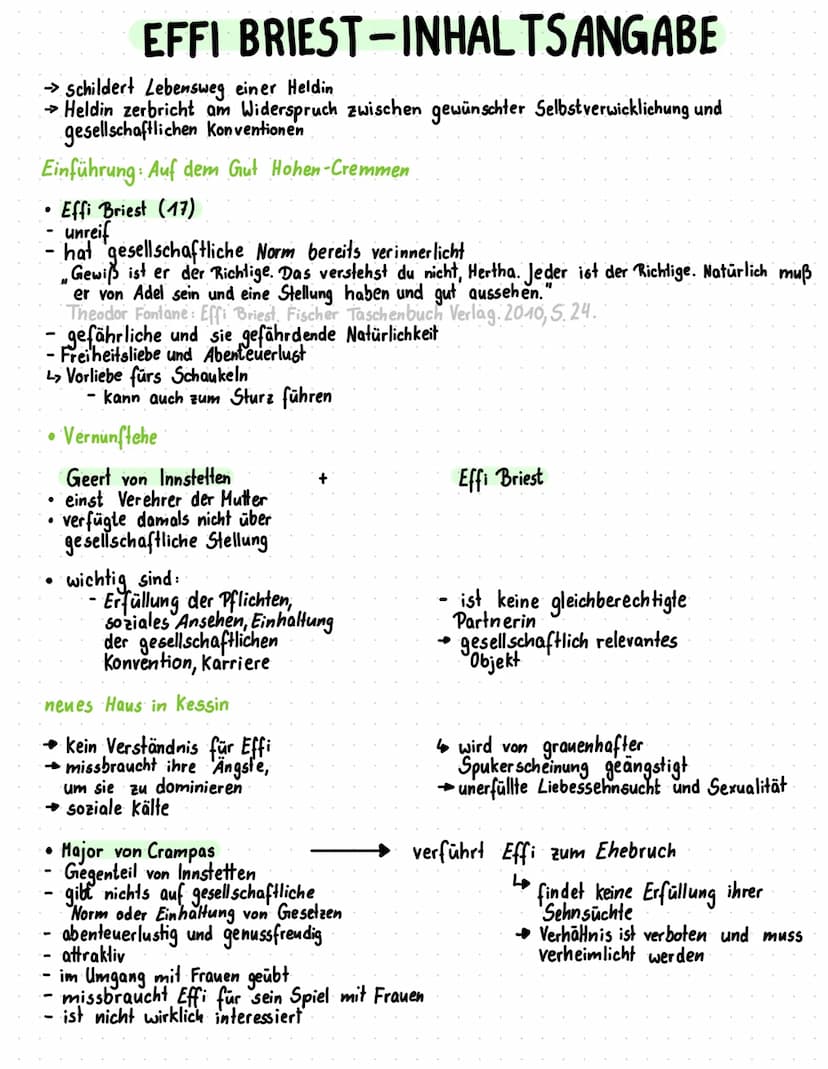 EFFI BRIEST - INHALTSANGABE
→ schildert Lebensweg einer Heldin
→ Heldin zerbricht am Widerspruch zwischen gewünschter Selbstverwicklichung und
gesellschaftlichen Konventionen
Einführung: Auf dem Gut Hohen-Cremmen
• Effi Briest (17)
- unreif
- hat gesellschaftliche Norm bereits verinnerlicht
„Gewiß ist er der Richtige. Das verstehst du nicht, Hertha. Jeder ist der Richtige. Natürlich muß
er von Adel sein und eine Stellung haben und gut aussehen."
Theodor Fontane: Effi Briest. Fischer Taschenbuch Verlag. 2010, S. 24.
- gefährliche und sie gefährdende Natürlichkeit
- Freiheitsliebe und Abenteuerlust
↳ Vorliebe fürs Schaukeln
- kann auch zum Sturz führen
• Vernunftehe
Geert von Innstetten + Effi Briest
• einst Verehrer der Mutter
• verfügte damals nicht über
gesellschaftliche Stellung
• wichtig sind:
- Erfüllung der Pflichten,
soziales Ansehen, Einhaltung
der gesellschaftlichen
Konvention, Karriere
- ist keine gleichberechtigte
Partnerin
→ gesellschaftlich relevantes
Objekt
neues Haus in Kessin
→ kein Verständnis für Effi
→ missbraucht ihre Ängste,
um sie zu dominieren
→ soziale Kälte
↳ wird von grauenhafter
Spukerscheinung geängstigt
→ unerfüllte Liebessehnsucht und Sexualität
• Major von Crampas → verführt Effi zum Ehebruch
- Gegenteil von Innstetten
- gibt nichts auf gesellschaftliche
Norm oder Einhaltung von Gesetzen
- abenteuerlustig und genussfreudig
- attraktiv
- im Umgang mit Frauen geübt
- missbraucht Effi für sein Spiel mit Frauen
- ist nicht wirklich interessiert
↳ findet keine Erfüllung ihrer
Sehnsüchte
→ Verhältnis ist verboten und muss
verheimlicht werden